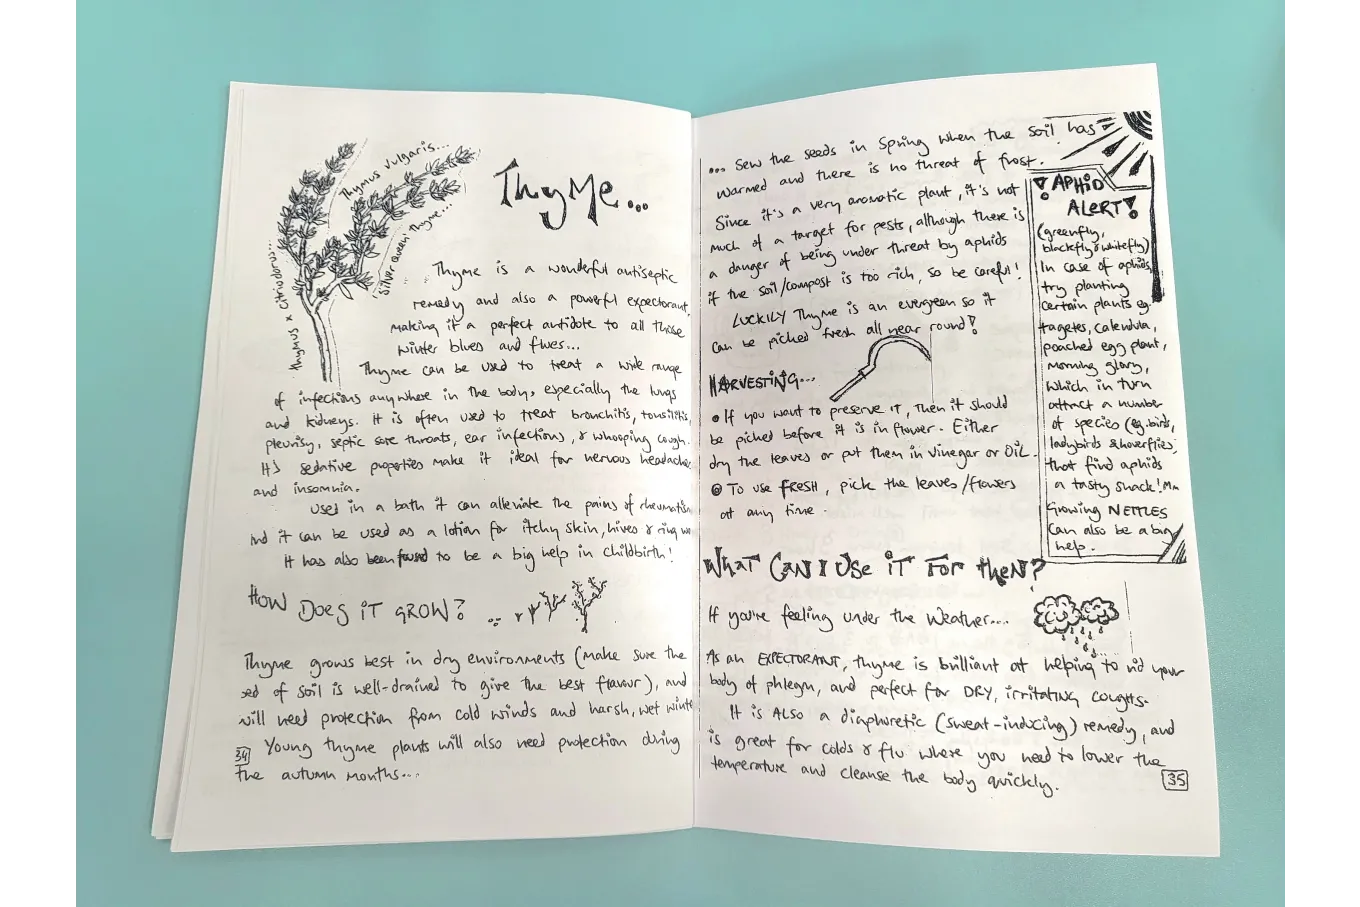 Thymus vulgaris...
Silver Queen Thyme...
Thymus x citriodorus...
Thyme...
Thyme is a wonderful antiseptic
remedy and also a powerful expectorant,
making it a perfect antidote to all those
winter blues and flues...
Thyme can be used to treat a wide range
of infections anywhere in the body, especially the lungs
and kidneys. It is often used to treat bronchitis, tonsilitis,
pleurisy, septic sore throats, ear infections, & whooping cough.
It's sedative properties make it ideal for nervous headaches
and insomnia.
Used in a bath it can alleviate the pains of rheumatism
and it can be used as a lotion for itchy skin, hives & ring wo
It has also been found to be a big help in childbirth!
HOW DOES iT GROW?
Thyme grows best in dry environments (make sure the
bed of soil is well-drained to give the best flavour), and
will need protection from cold winds and harsh, wet winte
Young thyme plants will also need protection during
the autumn months...
34
... Sew the seeds in Spring when the soil has
warmed and there is no threat of frost.
Since it's a very aromatic plant, it's not
much of a target for pests, although there is
a danger of being under threat by aphids
if the soil/compost is too rich, so be careful!
LUCKILY Thyme is an evergreen so it
can be picked fresh all near round!
HARVESTiNG...
If you want to preserve IT, then it should
be picked before it is in flower. Either
dry the leaves or put them in vinegar or OiL.
To use FRESH, pick the leaves/flowers
at any time.
! APHiD
ALERT!
(greenfly,
blackfly & whitefly)
In case of aphids,
try planting
certain plants eg.
tagetes, calendula,
poached egg plant,
morning glory,
which in turn
attract a number
of species (eg. birds,
ladybirds & hoverflies)
that find aphids
a tasty snack! Mm
Growing NETTLES
can also be a big
help.
WHaT CAN I USe iT FOR THeN?
If you're feeling under the Weather...
As an EXPECTORANT, thyme is brilliant at helping to rid your
body of phlegm, and perfect for DRY, irritating coughs.
It is ALSO a diaphoretic (sweat-inducing) remedy, and
is great for colds & flu where you need to lower the
temperature and cleanse the body quickly.
35